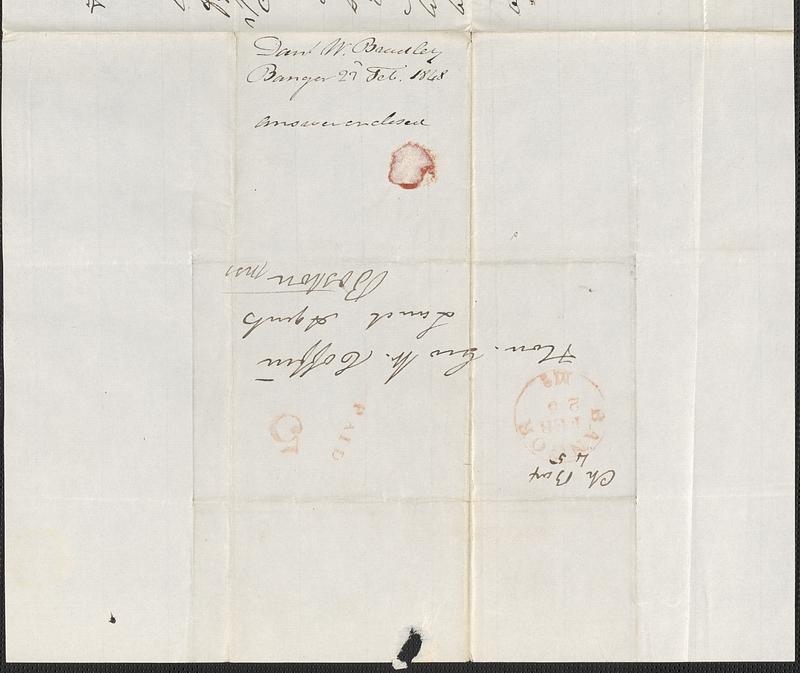 Danl W. Bradley
Bangor 27 Feb. 1848
answer enclosed
Ch Box
45
BANGOR
FEB
26
Me
PAID
5
Hon. Geo W. Coffin
Land Agent
Boston